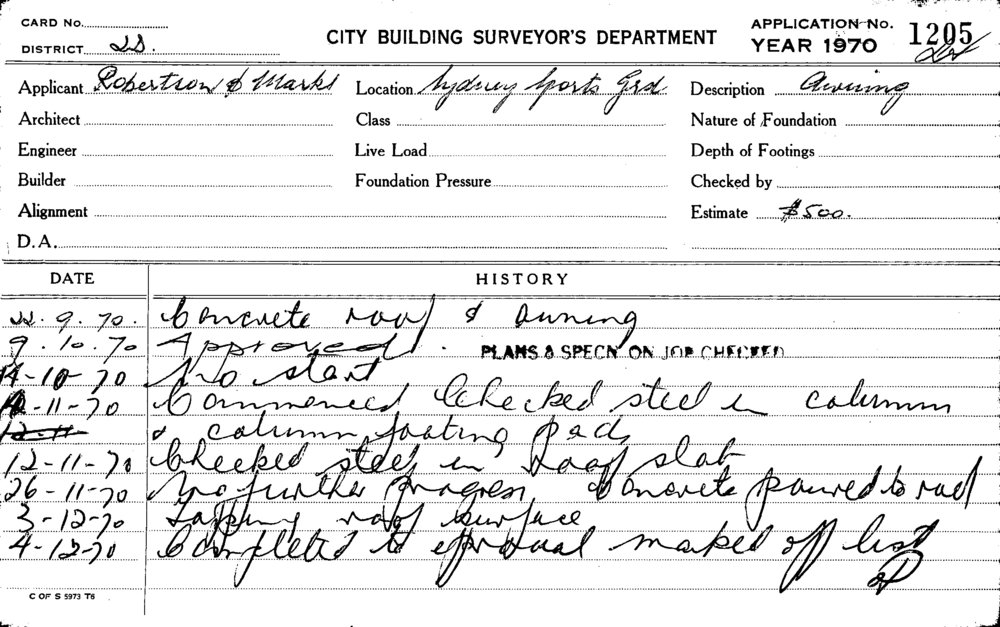 CARD NO.
DISTRICT
CITY BUILDING SURVEYOR'S DEPARTMENT
APPLICATION No. 1205
YEAR 1970
Applicant Robertson & Marks
Location Sydney Sports Grd.
Description Awning
Architect
Class
Nature of Foundation
Engineer
Live Load
Depth of Footings
Builder
Foundation Pressure
Checked by
Alignment
Estimate $500.
D.A.
DATE HISTORY
22.9.70. Concrete roof & awning
9.10.70 Approved. PLANS & SPECN ON JOB CHECKED
14-10-70 No start
-11-70 Commenced Checked steel in column
12-11 & column footing pads
12-11-70 Checked steel in roof slab
26-11-70 No further progress, concrete poured to roof
3-12-70 Topping roof surface
4-12-70 Completed to approval marked off list
C OF S 5973 T6